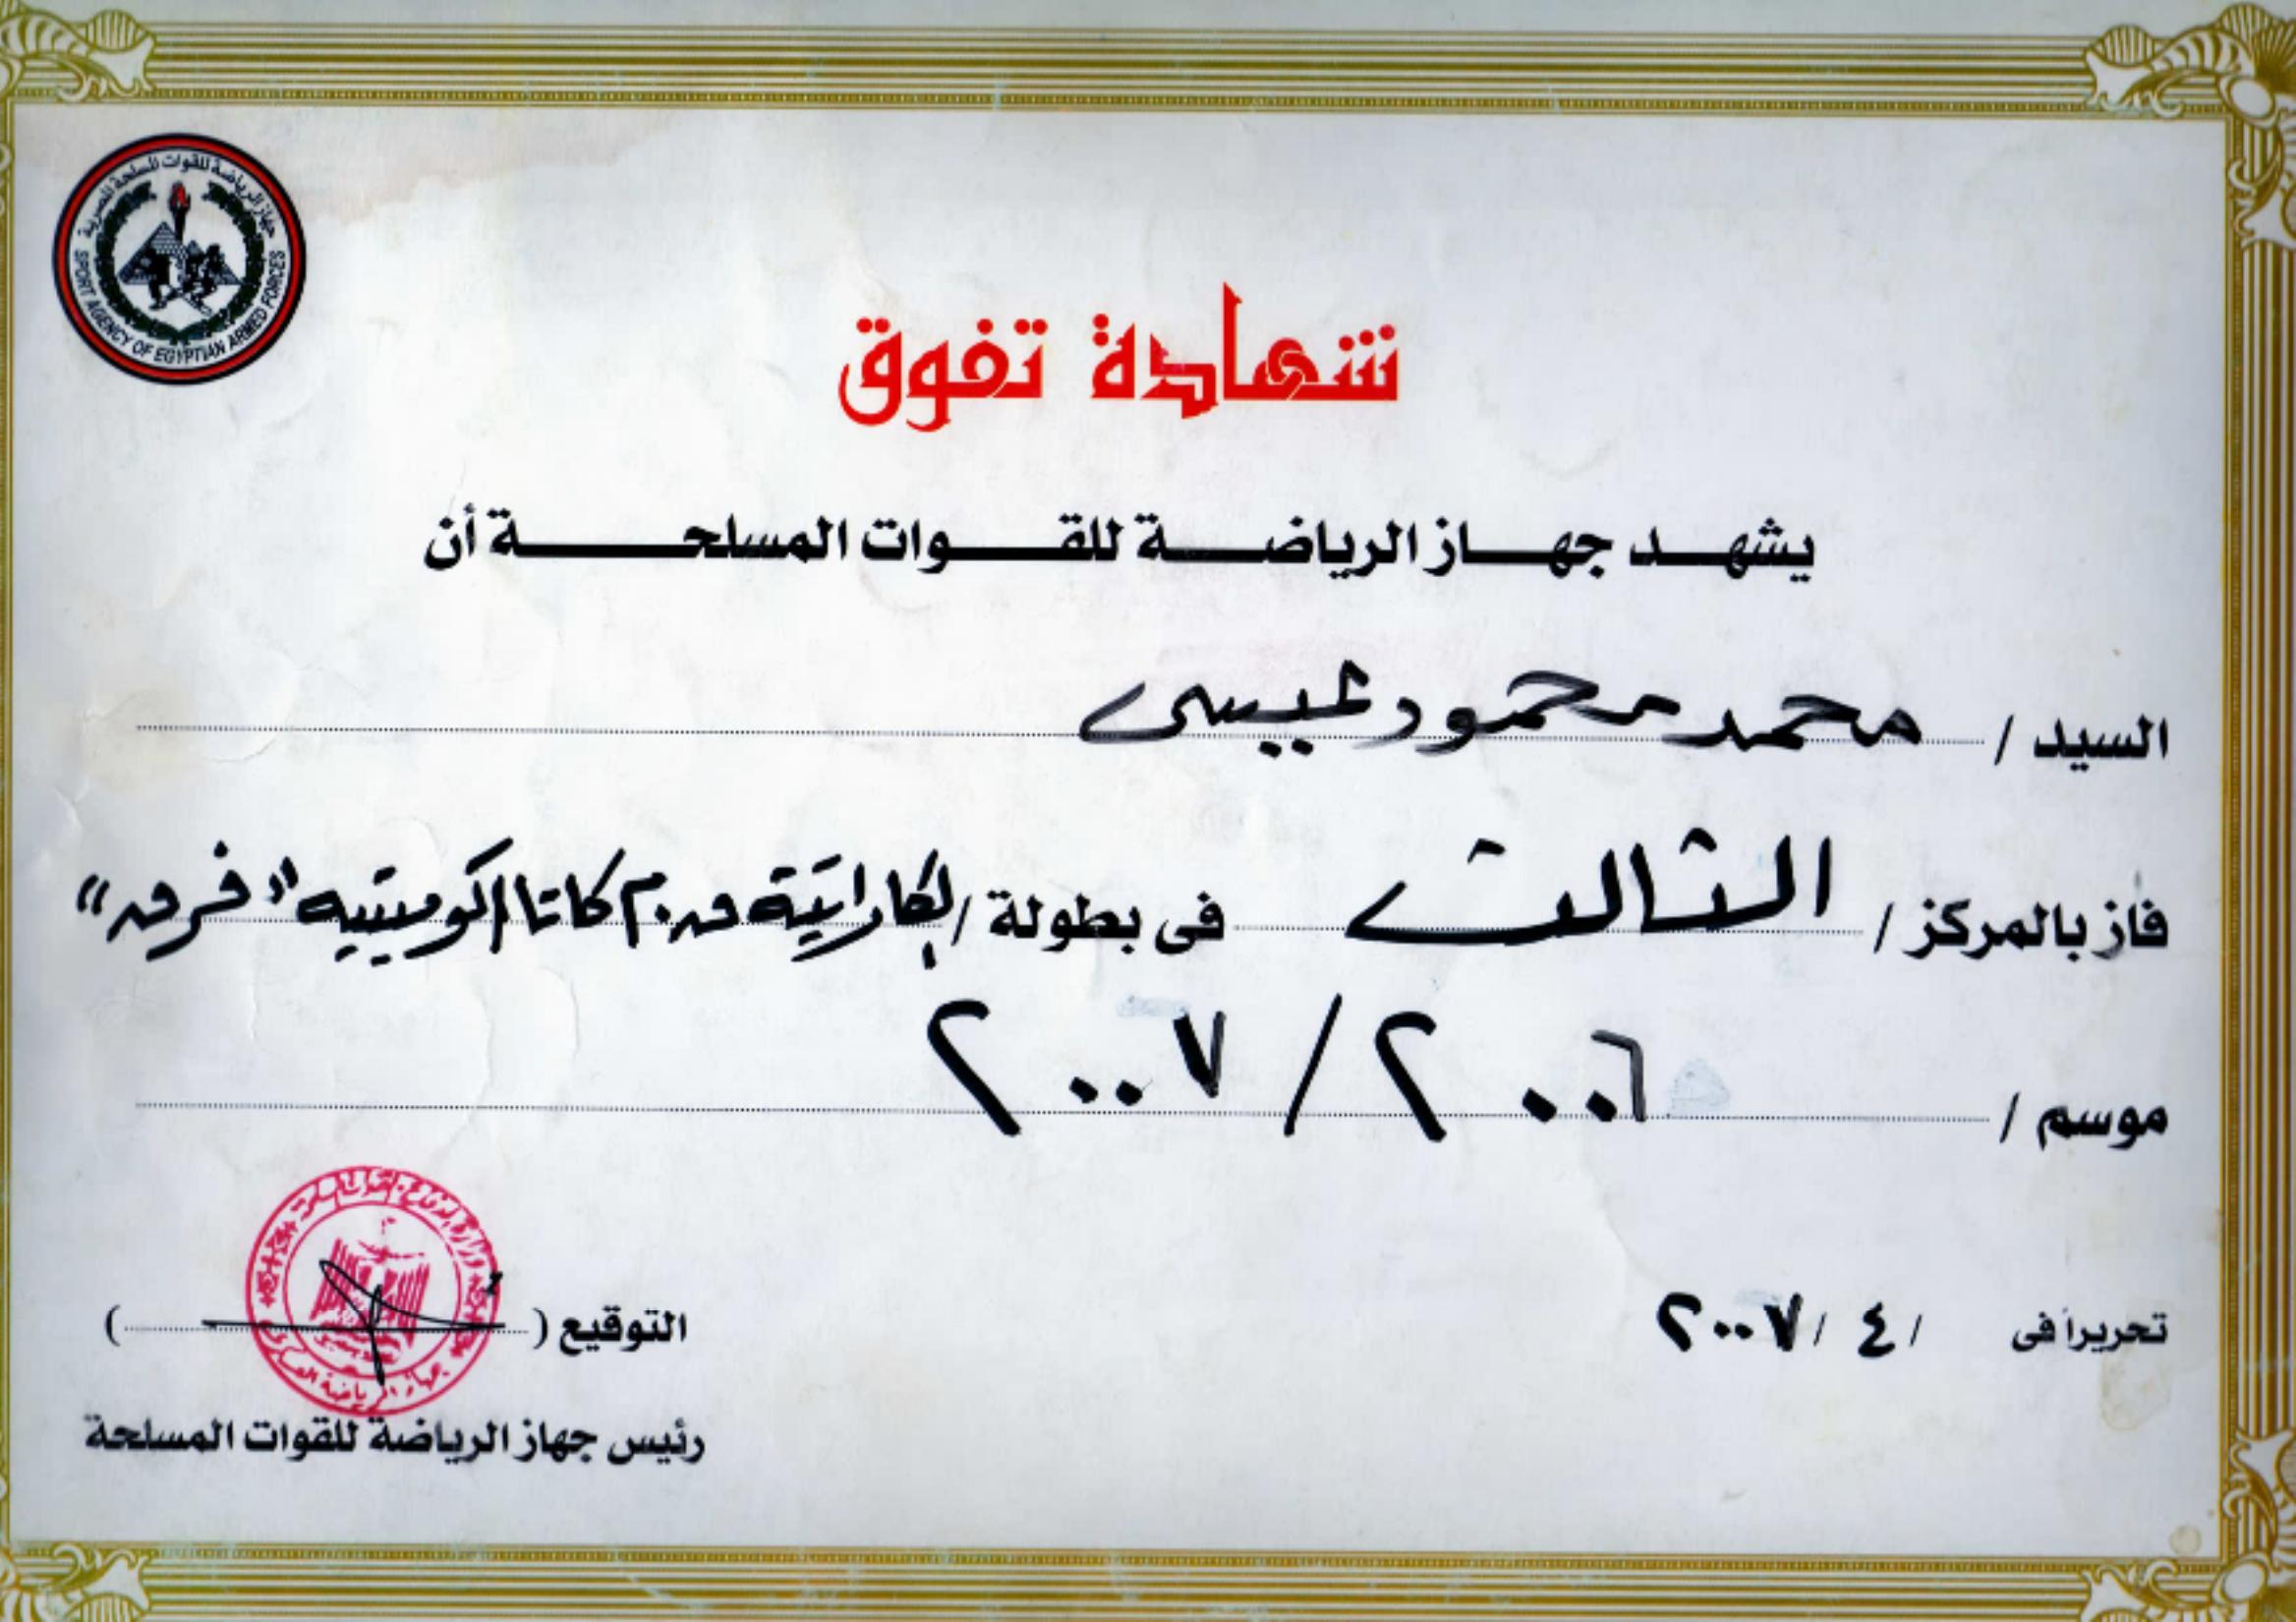 جهاز الرياضة للقوات المسلحة المصرية
SPORT AGENCY OF EGYPTIAN ARMED FORCES
شهادة تفوق
يشهد جهاز الرياضة للقوات المسلحة أن
السيد / محمد محمود عيسى
فاز بالمركز / الثالث فى بطولة / الكاراتية ق.م كاتا الكوميتيه "فرق"
موسم / ٢٠٠٦ / ٢٠٠٧
تحريراً فى / ٤ / ٢٠٠٧
التوقيع ( )
رئيس جهاز الرياضة للقوات المسلحة